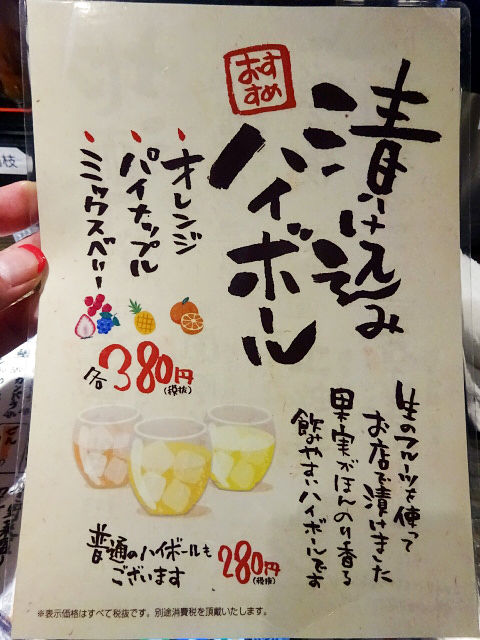 おすすめ
漬け込み
ハイボール
オレンジ
パイナップル
ミックスベリー
各380円
(税抜)
生のフルーツを使って
お店で漬けました
果実がほんのり香る
飲みやすいハイボールです
普通のハイボールも
ございます
280円
(税抜)
※表示価格はすべて税抜です。別途消費税を頂戴いたします。
枝